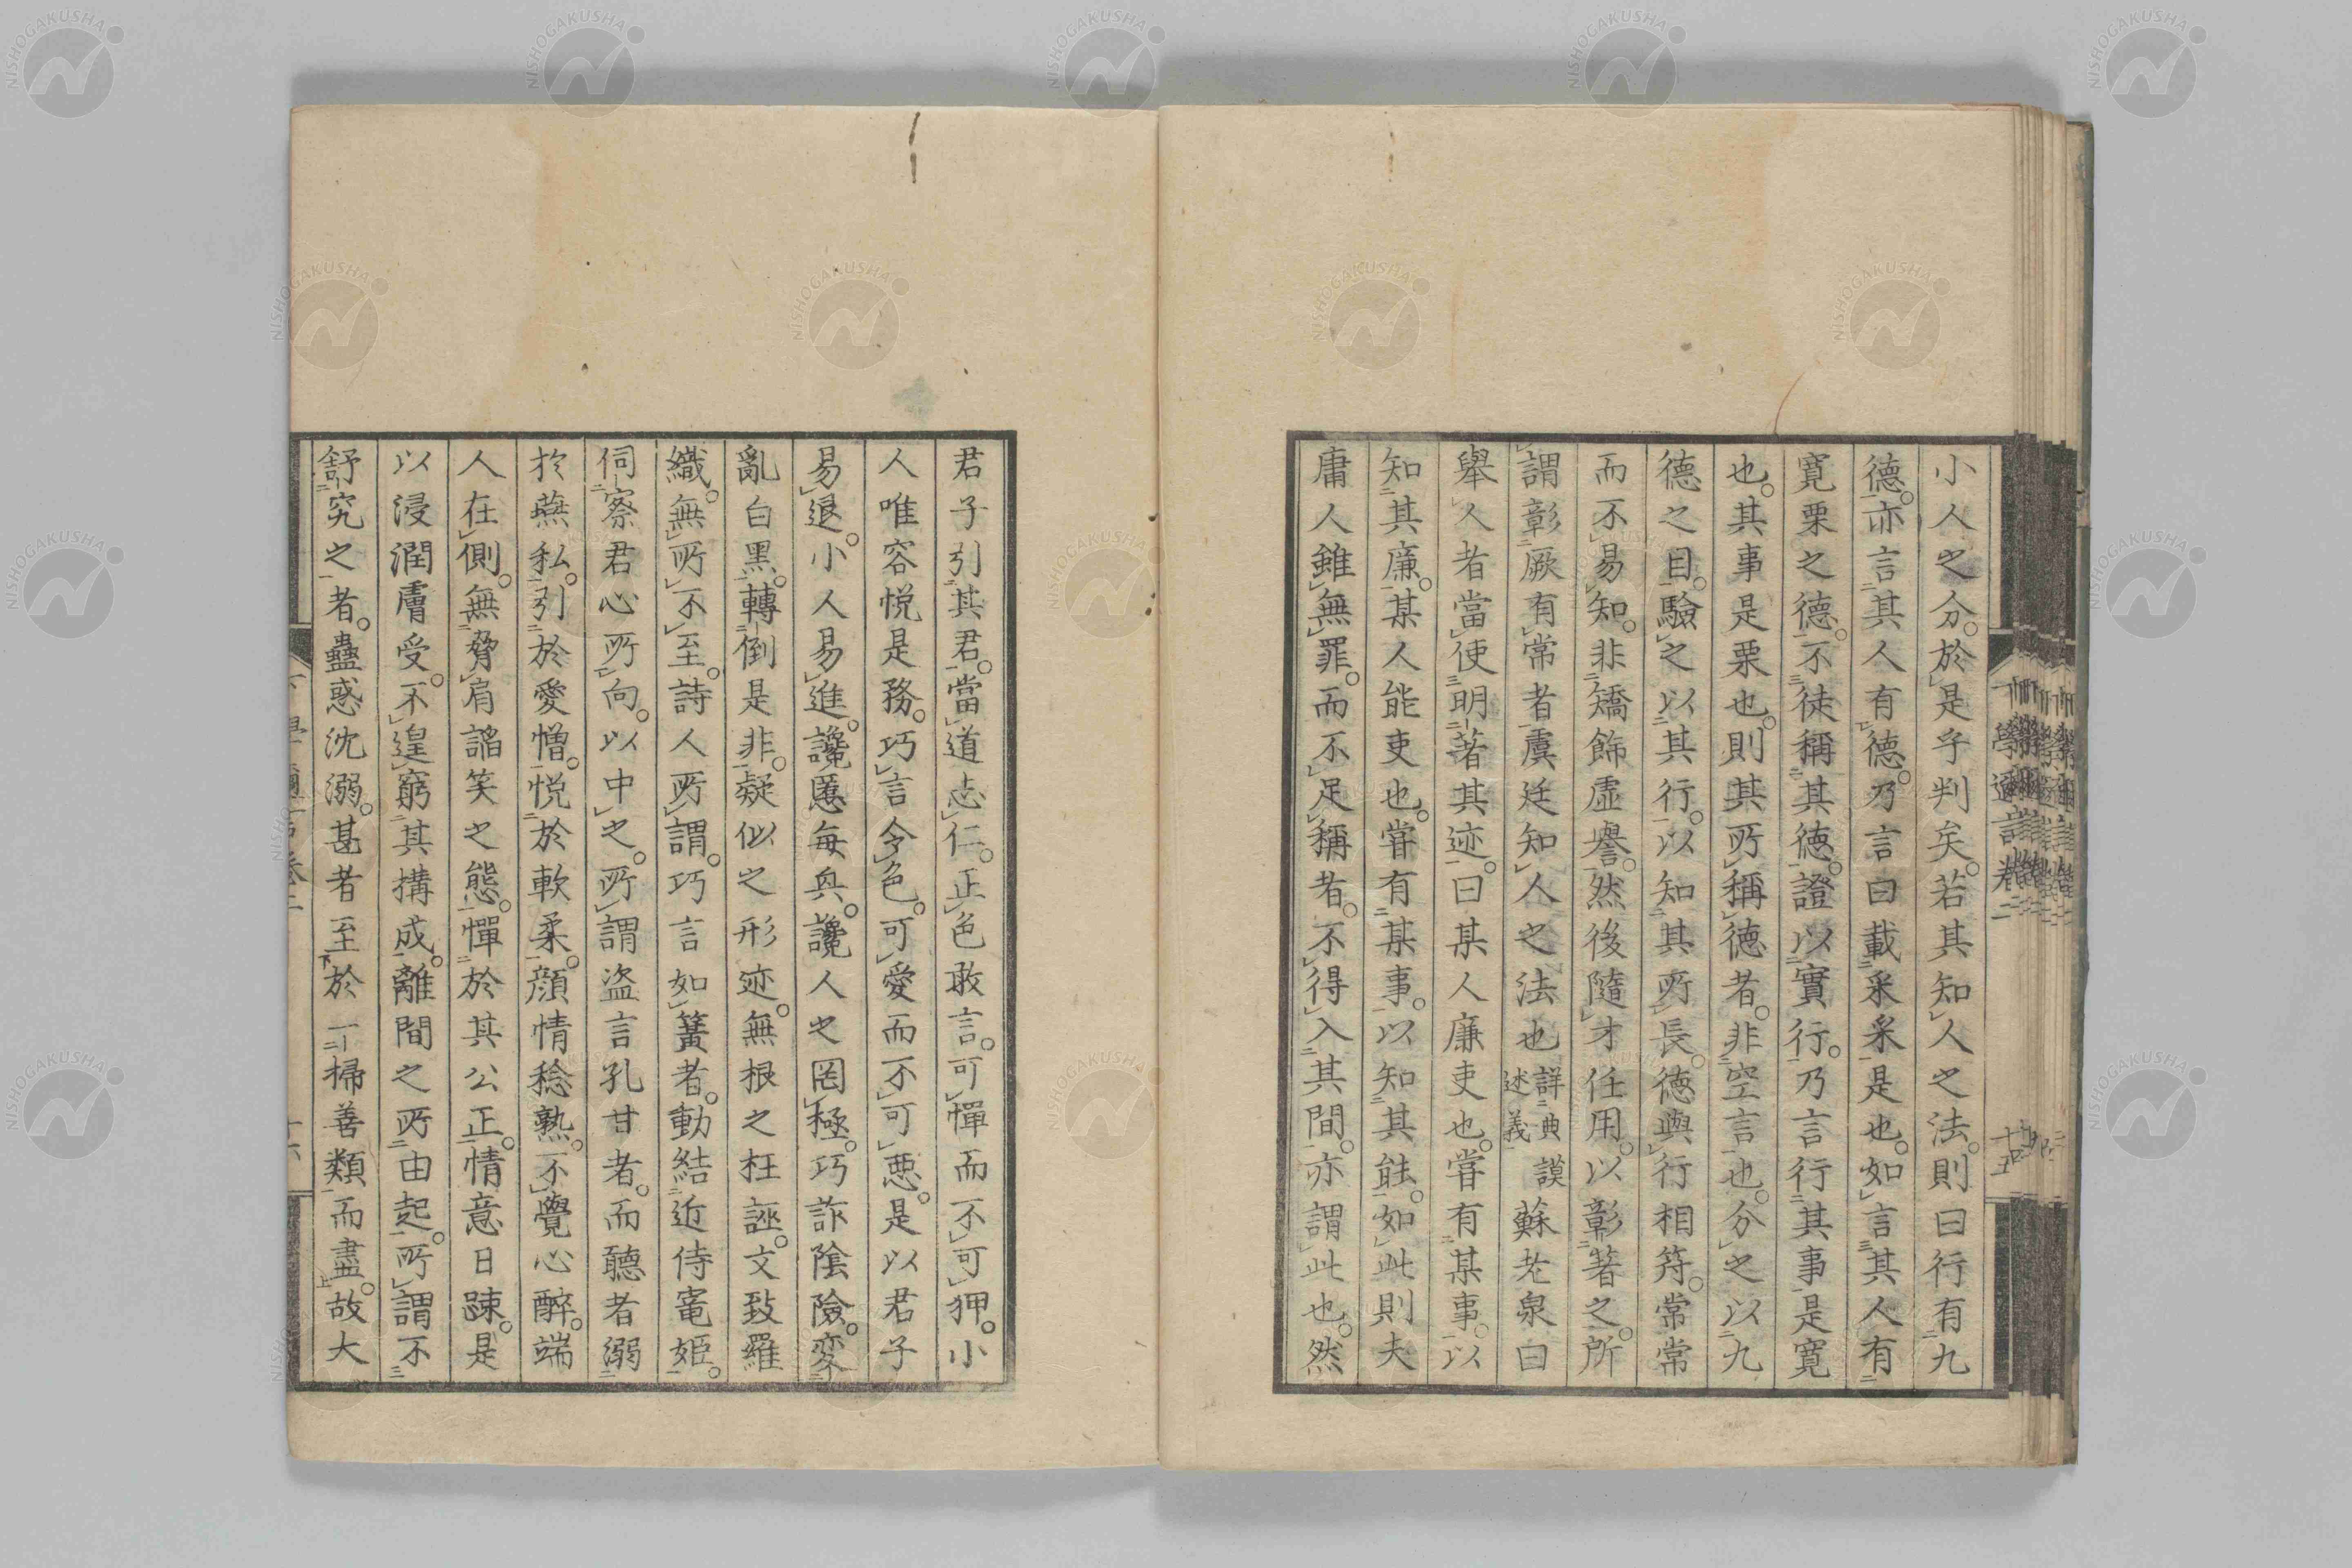 小人之分。於是乎判矣。若其知人之法。則曰行有九
德。亦言其人有德。乃言曰載采采是也。如言其人有
寛栗之德。不徒稱其德。證以實行。乃言行其事是寛
也。其事是栗也。則其所稱德者。非空言也。分之以九
德之目。驗之以其行。以知其所長。德與行相符。常常
而不易知。非矯飾虛譽。然後隨才任用。以彰著之。所
謂彰厥有常者。虞廷知人之法也 詳典謨述義 蘇老泉曰
舉人者當使明著其迹。曰某人廉吏也。嘗有某事。以
知其廉。某人能吏也。嘗有某事。以知其能。如此則夫
庸人雖無罪。而不足稱者。不得入其間。亦謂此也。然
君子引其君。當道志仁。正色敢言。可憚而不可狎。小
人唯容悅是務。巧言令色。可愛而不可惡。是以君子
易退。小人易進。讒慝每與。讒人之罔極。巧詐陰險。變
亂白黑。轉倒是非。疑似之形迹。無根之枉誣。文致羅
織。無所不至。詩人所謂。巧言如簧者。動結近侍寵姬。
伺察君心所向。以中之。所謂盜言孔甘者。而聽者溺
於燕私。引於愛憎。悅於軟柔。顏情稔熟。不覺心醉。端
人在側。無脅肩諂笑之態。憚於其公正。情意日踈。是
以浸潤膚受。不遑窮其搆成。離間之所由起。所謂不
舒究之者。蠱惑沈溺。甚者至於一掃善類而盡。故大
下學邇言卷二
十五
NISHOGAKUSHA